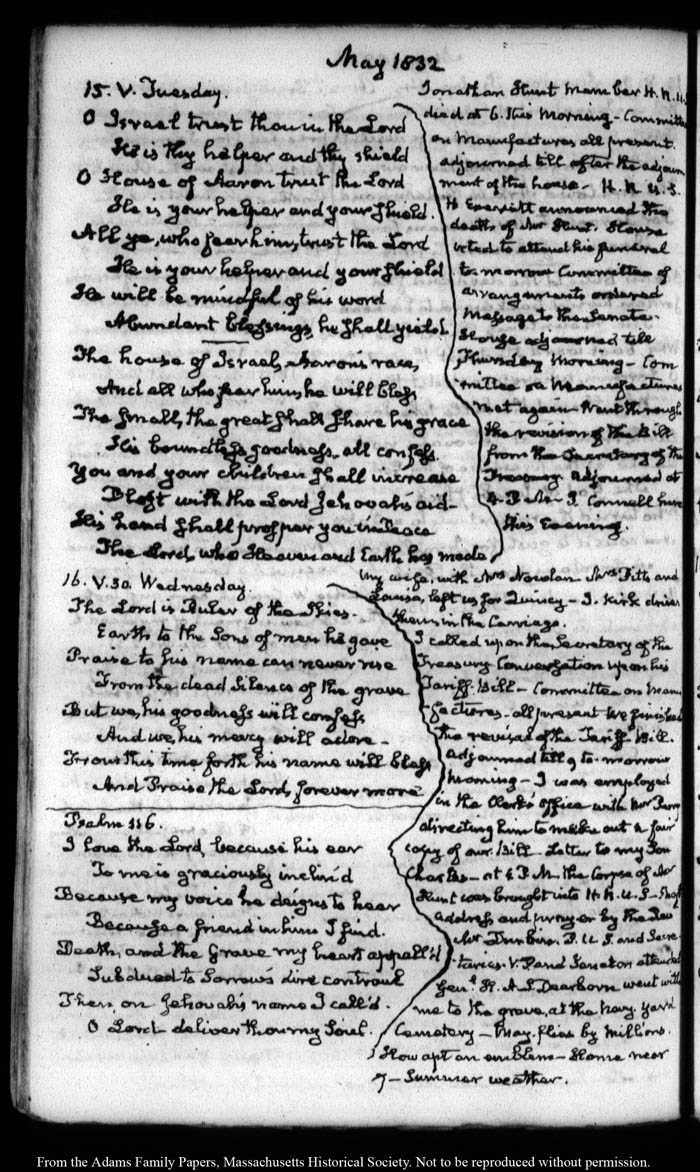 May 1832
15. V. Tuesday.
O Israel trust thou in the Lord
He is thy helper and thy shield
O House of Aaron trust the Lord
He is your helper and your shield.
All ye, who fear him, trust the Lord
He is your helper and your shield
He will be mindful of his word
Abundant blessings, he shall yield.
The house of Israel, Aaron's race,
And all who fear him, he will bless
The small, the great shall share his grace
His boundless goodness, all confess.
You and your children shall increase
Blest with the Lord Jehovah's aid—
His hand shall prosper you in Peace
The Lord, who Heaven and Earth has made
Jonathan Hunt Member H. R. U.S
died at 6. this Morning — Committee
on Manufactures all present.
adjourned till after the adjourn
ment of the house — H. R. U.S.
H Everett announced the
death of Mr Hunt. House
voted to attend his funeral
to-morrow Committee of
arrangements ordered
Message to the Senate.
House adjourned till
Thursday Morning — Com
mittee on Manufactures
met again. Went through
the revision of the Bill
from the Secretary of the
Treasury. Adjourned at
4. P.M. J Connell here
this Evening.
16. V.30. Wednesday.
The Lord is Ruler of the Skies.
Earth to the Sons of men he gave
Praise to his name can never rise
From the dead silence of the grave
But we, his goodness will confess
And we, his mercy will adore —
From this time forth his name will bless
And Praise the Lord, forever more
Psalm 116.
I love the Lord, because his ear
To me is graciously inclin'd
Because my voice he deigns to hear
Because a friend in him I find.
Death, and the Grave my heart appall'd
Subdued to Sorrow's dire controul
Then on Jehovah's name I call'd.
O Lord deliver thou my Soul.
My wife, with Mrs Nowlan Mrs Pitts and
Louisa, left us for Quincy — J. Kirk drives
them in the Carriage.
I called upon the Secretary of the
Treasury Conversation upon his
Tariff-Bill — Committee on Manu
factures — all present We finished
the revisal of the Tariff Bill.
Adjourned till 9 to-morrow
Morning — I was employed
in the Clerk's office with Mr
directing him to make out a fair
copy of our Bill — Letter to my Son
Charles — at 4 P.M. the Corpse of Mr
Hunt was brought into H. R. U.S.
Address and prayer by the Revd
Mr P. U.S. and Secre
taries. V.P. and Senators attended
Genl. H. A. S. Dearborn went with
me to the grave, at the Navy Yard
Cemetery — May-flies by Millions.
How apt an emblem — Home near
7 — Summer weather.
From the Adams Family Papers, Massachusetts Historical Society. Not to be reproduced without permission.